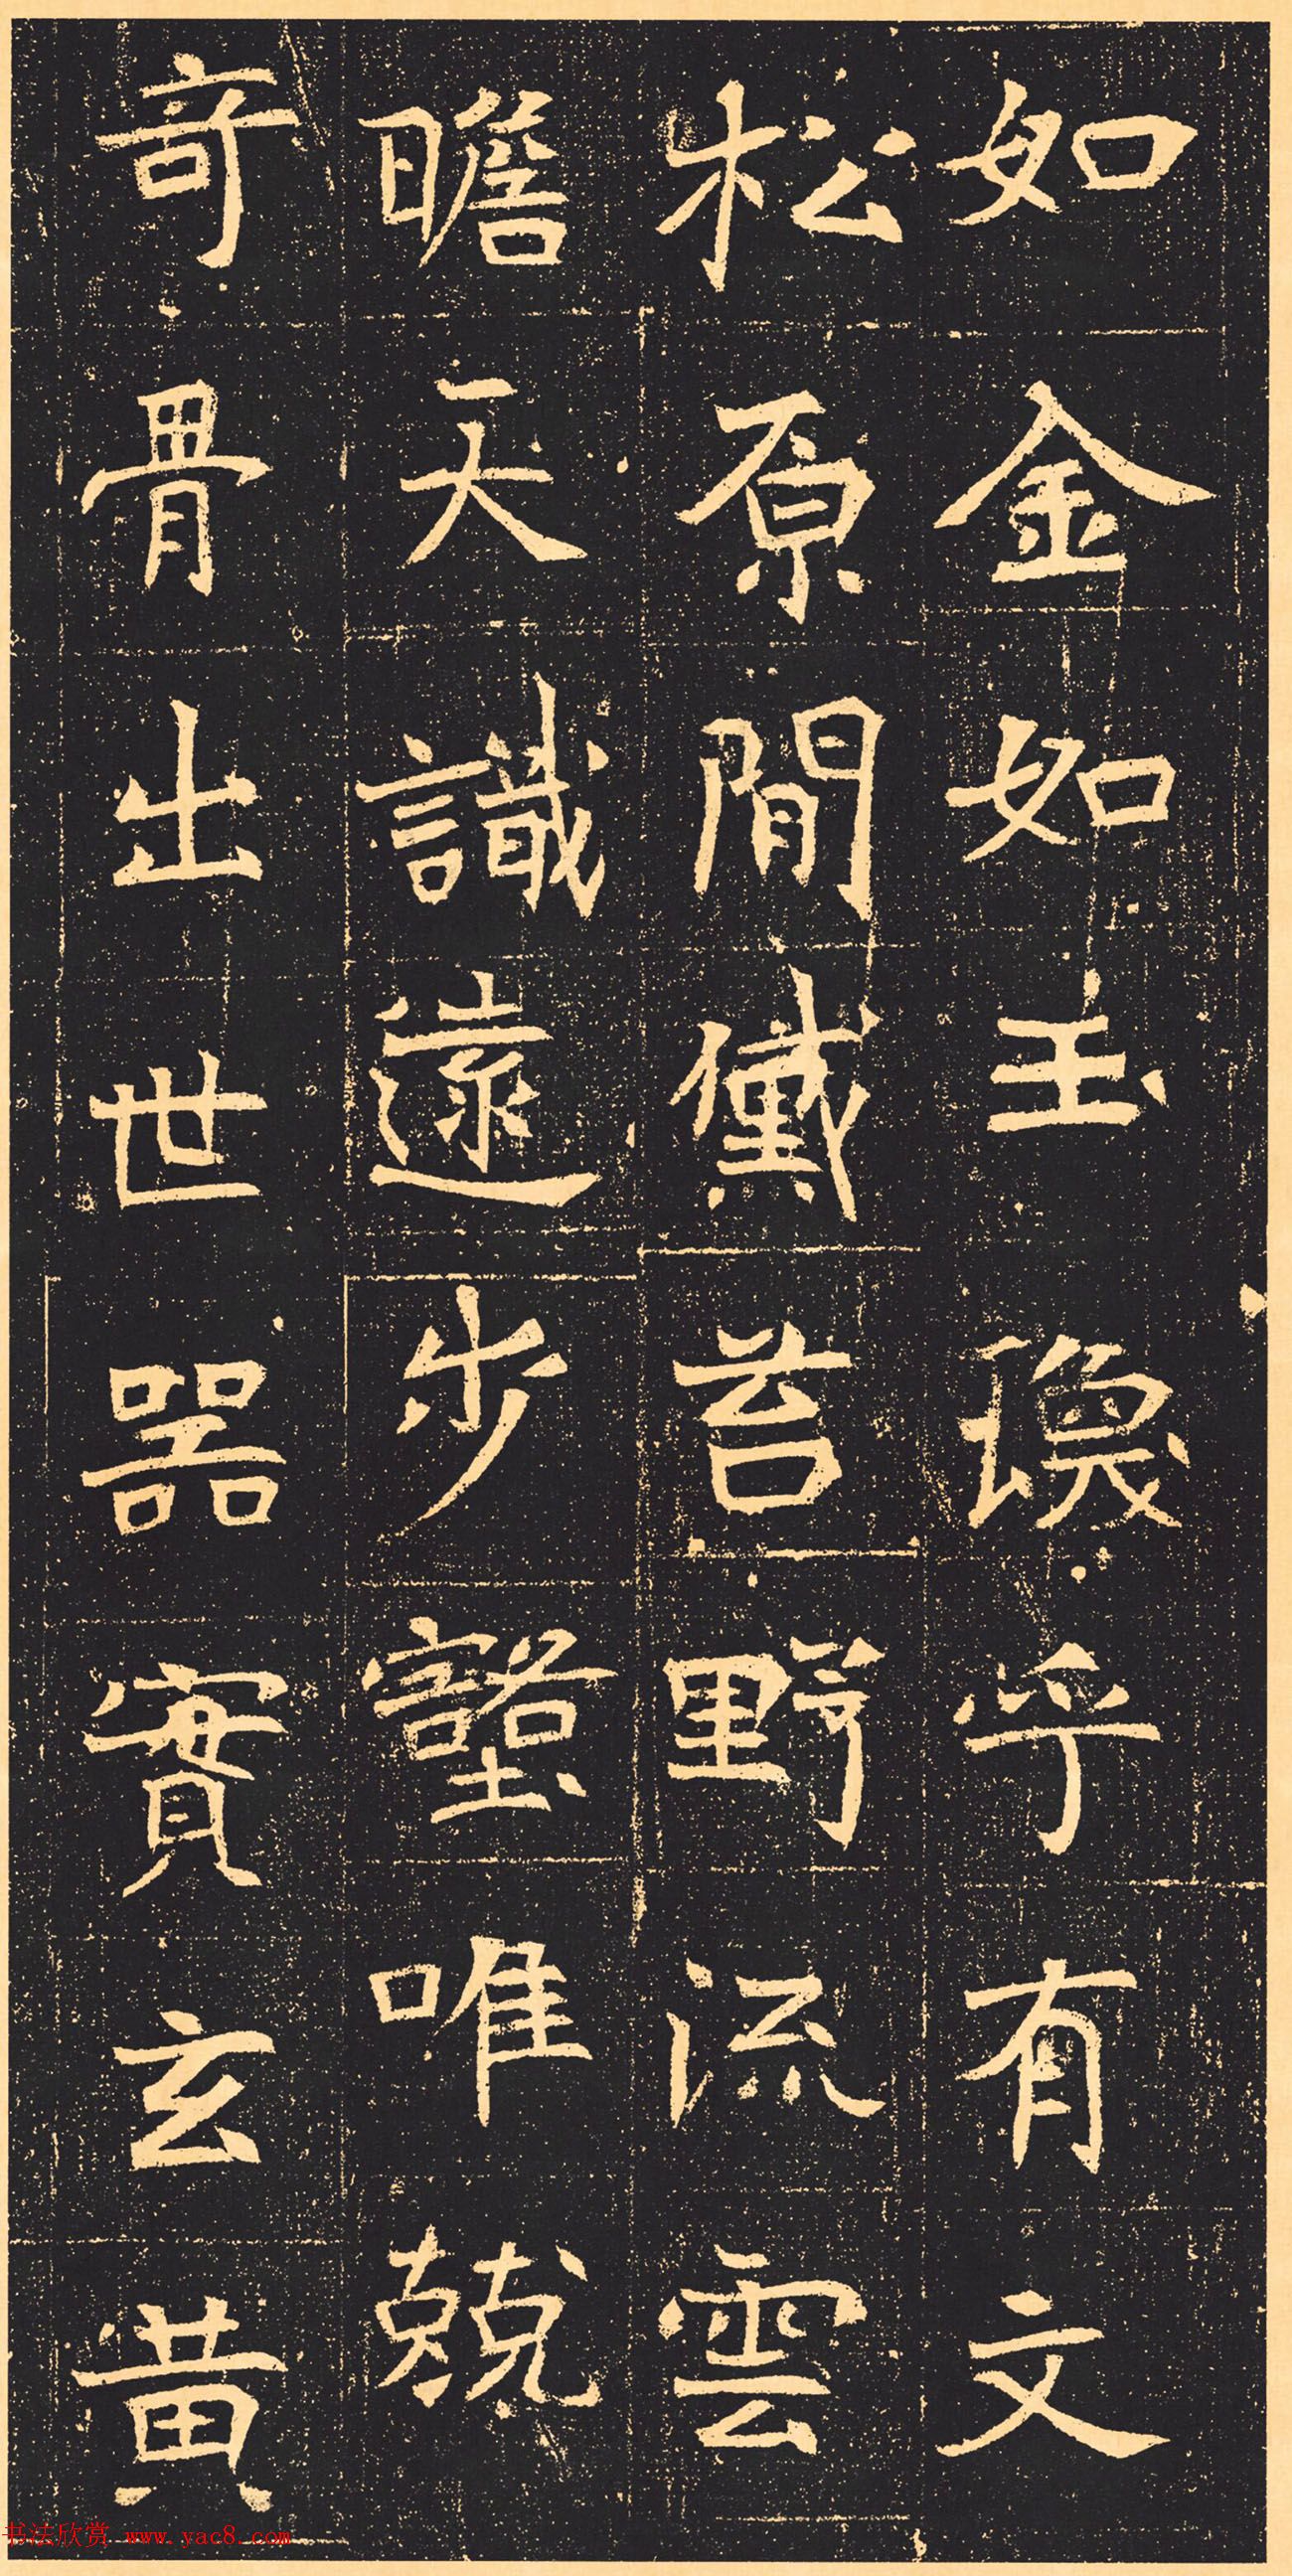 如金如玉乎有文
松原閒黛苔野流雲
瞻天識遠步壑唯兢
奇骨出世器實玄黄
书法欣赏 www.yac8.com